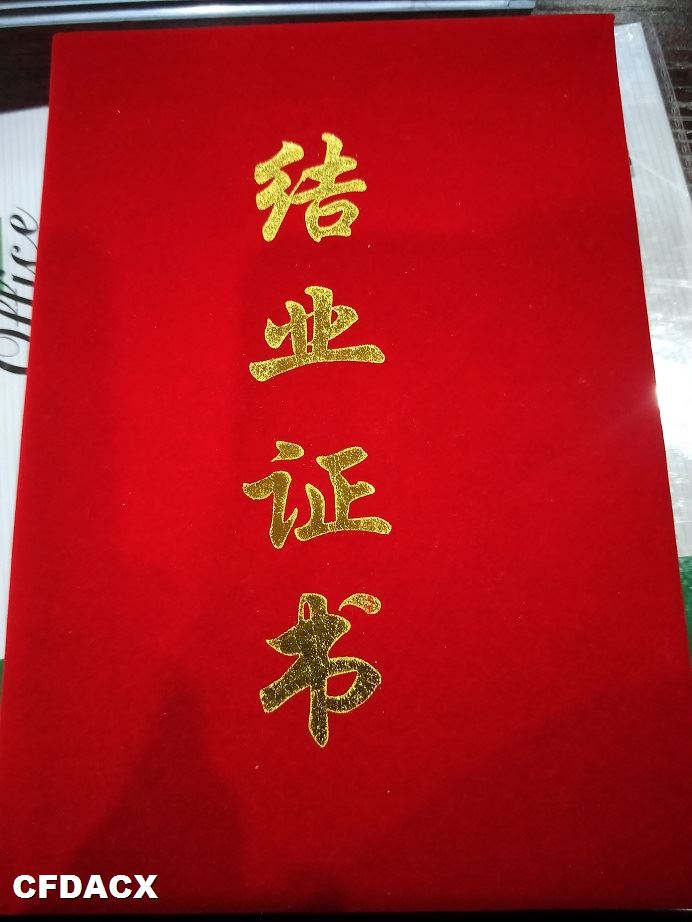 结业证书
Office
CFDACX